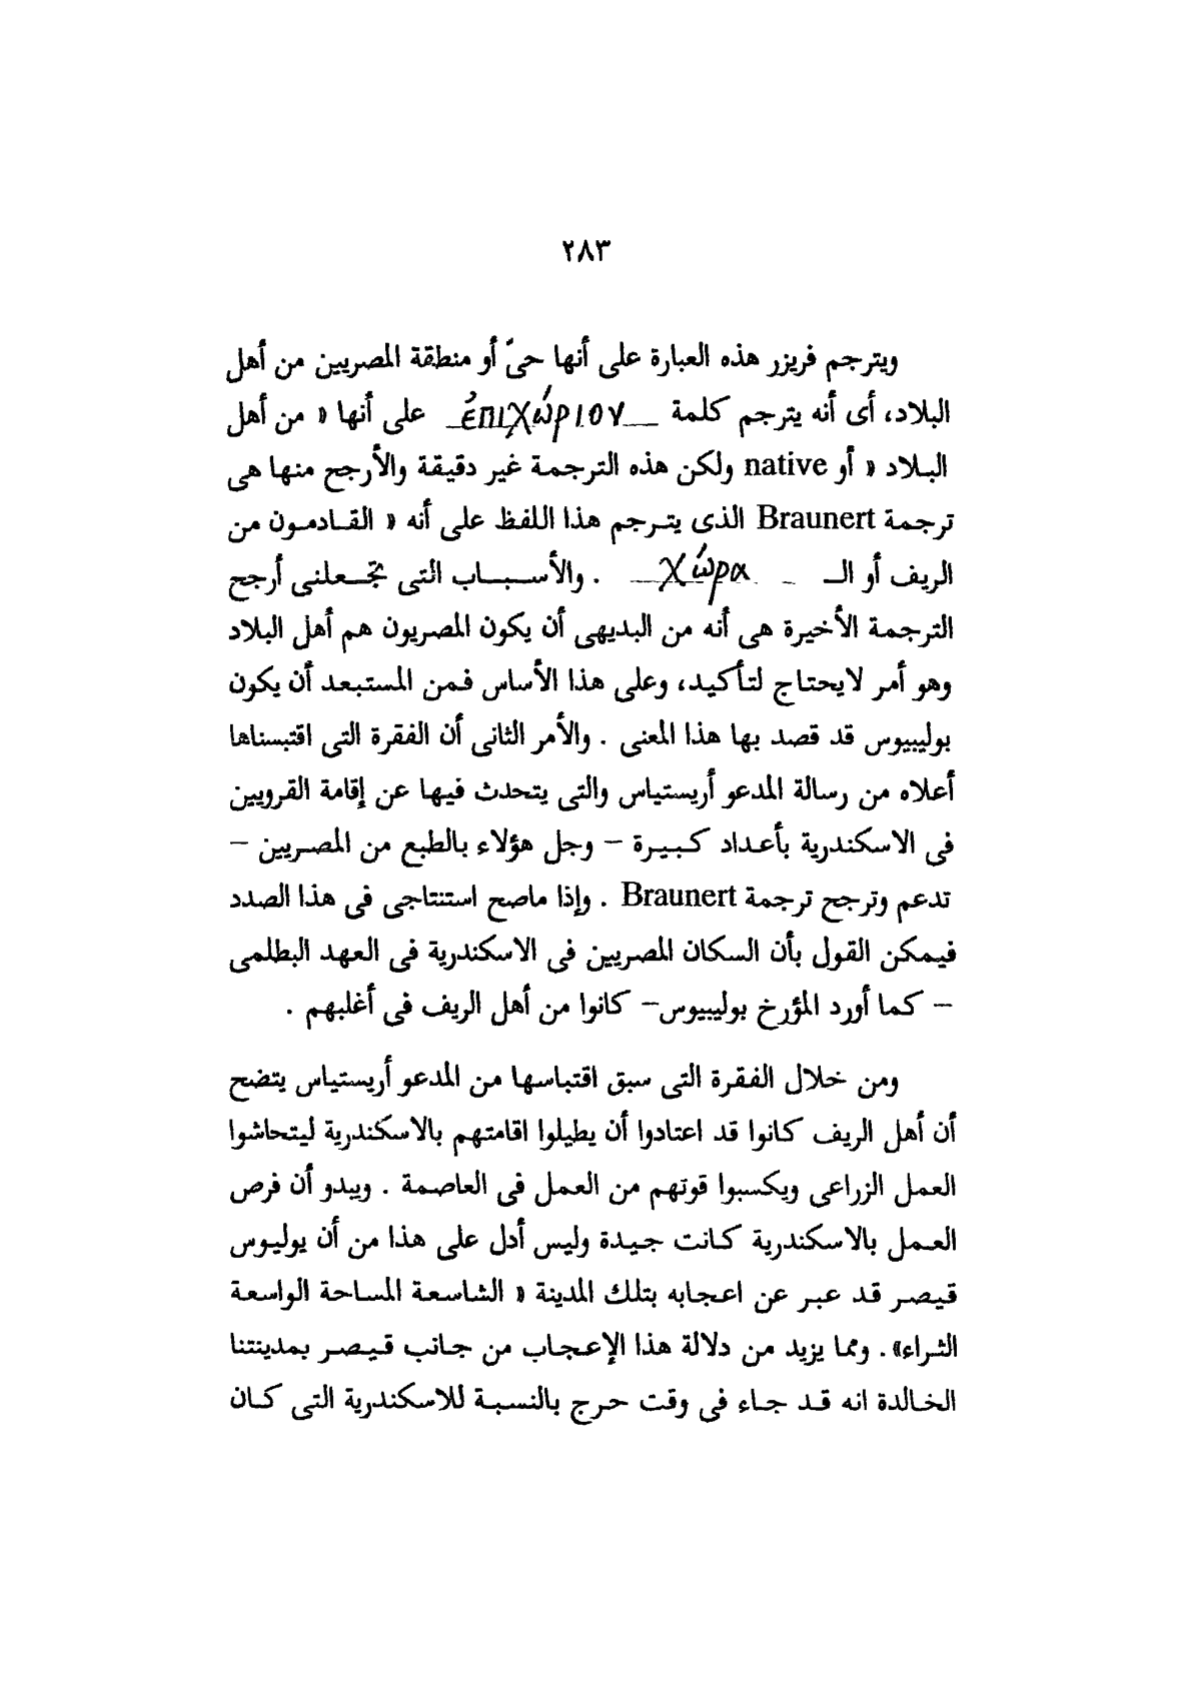 ٢٨٣
ويترجم فريزر هذه العبارة على أنها حىّ أو منطقة المصريين من أهل
البلاد، أى أنه يترجم كلمة ἐπιχώριον على أنها « من أهل
البلاد « أو native ولكن هذه الترجمة غير دقيقة والأرجح منها هى
ترجمة Braunert الذى يترجم هذا اللفظ على أنه « القادمون من
الريف أو الـ χώρα . والأسباب التى تجعلنى أرجح
الترجمة الأخيرة هى أنه من البديهى أن يكون المصريون هم أهل البلاد
وهو أمر لايحتاج لتأكيد، وعلى هذا الأساس فمن المستبعد أن يكون
بوليبيوس قد قصد بها هذا المعنى . والأمر الثانى أن الفقرة التى اقتبسناها
أعلاه من رسالة المدعو أريستياس والتى يتحدث فيها عن إقامة القرويين
فى الاسكندرية بأعداد كبيرة – وجل هؤلاء بالطبع من المصريين –
تدعم وترجح ترجمة Braunert . وإذا ماصح استنتاجى فى هذا الصدد
فيمكن القول بأن السكان المصريين فى الاسكندرية فى العهد البطلمى
– كما أورد المؤرخ بوليبيوس– كانوا من أهل الريف فى أغلبهم .
ومن خلال الفقرة التى سبق اقتباسها من المدعو أريستياس يتضح
أن أهل الريف كانوا قد اعتادوا أن يطيلوا اقامتهم بالاسكندرية ليتحاشوا
العمل الزراعى ويكسبوا قوتهم من العمل فى العاصمة . ويبدو أن فرص
العمل بالاسكندرية كانت جيدة وليس أدل على هذا من أن يوليوس
قيصر قد عبر عن اعجابه بتلك المدينة « الشاسعة المساحة الواسعة
الثراء» . ومما يزيد من دلالة هذا الإعجاب من جانب قيصر بمدينتنا
الخالدة انه قد جاء فى وقت حرج بالنسبة للاسكندرية التى كان